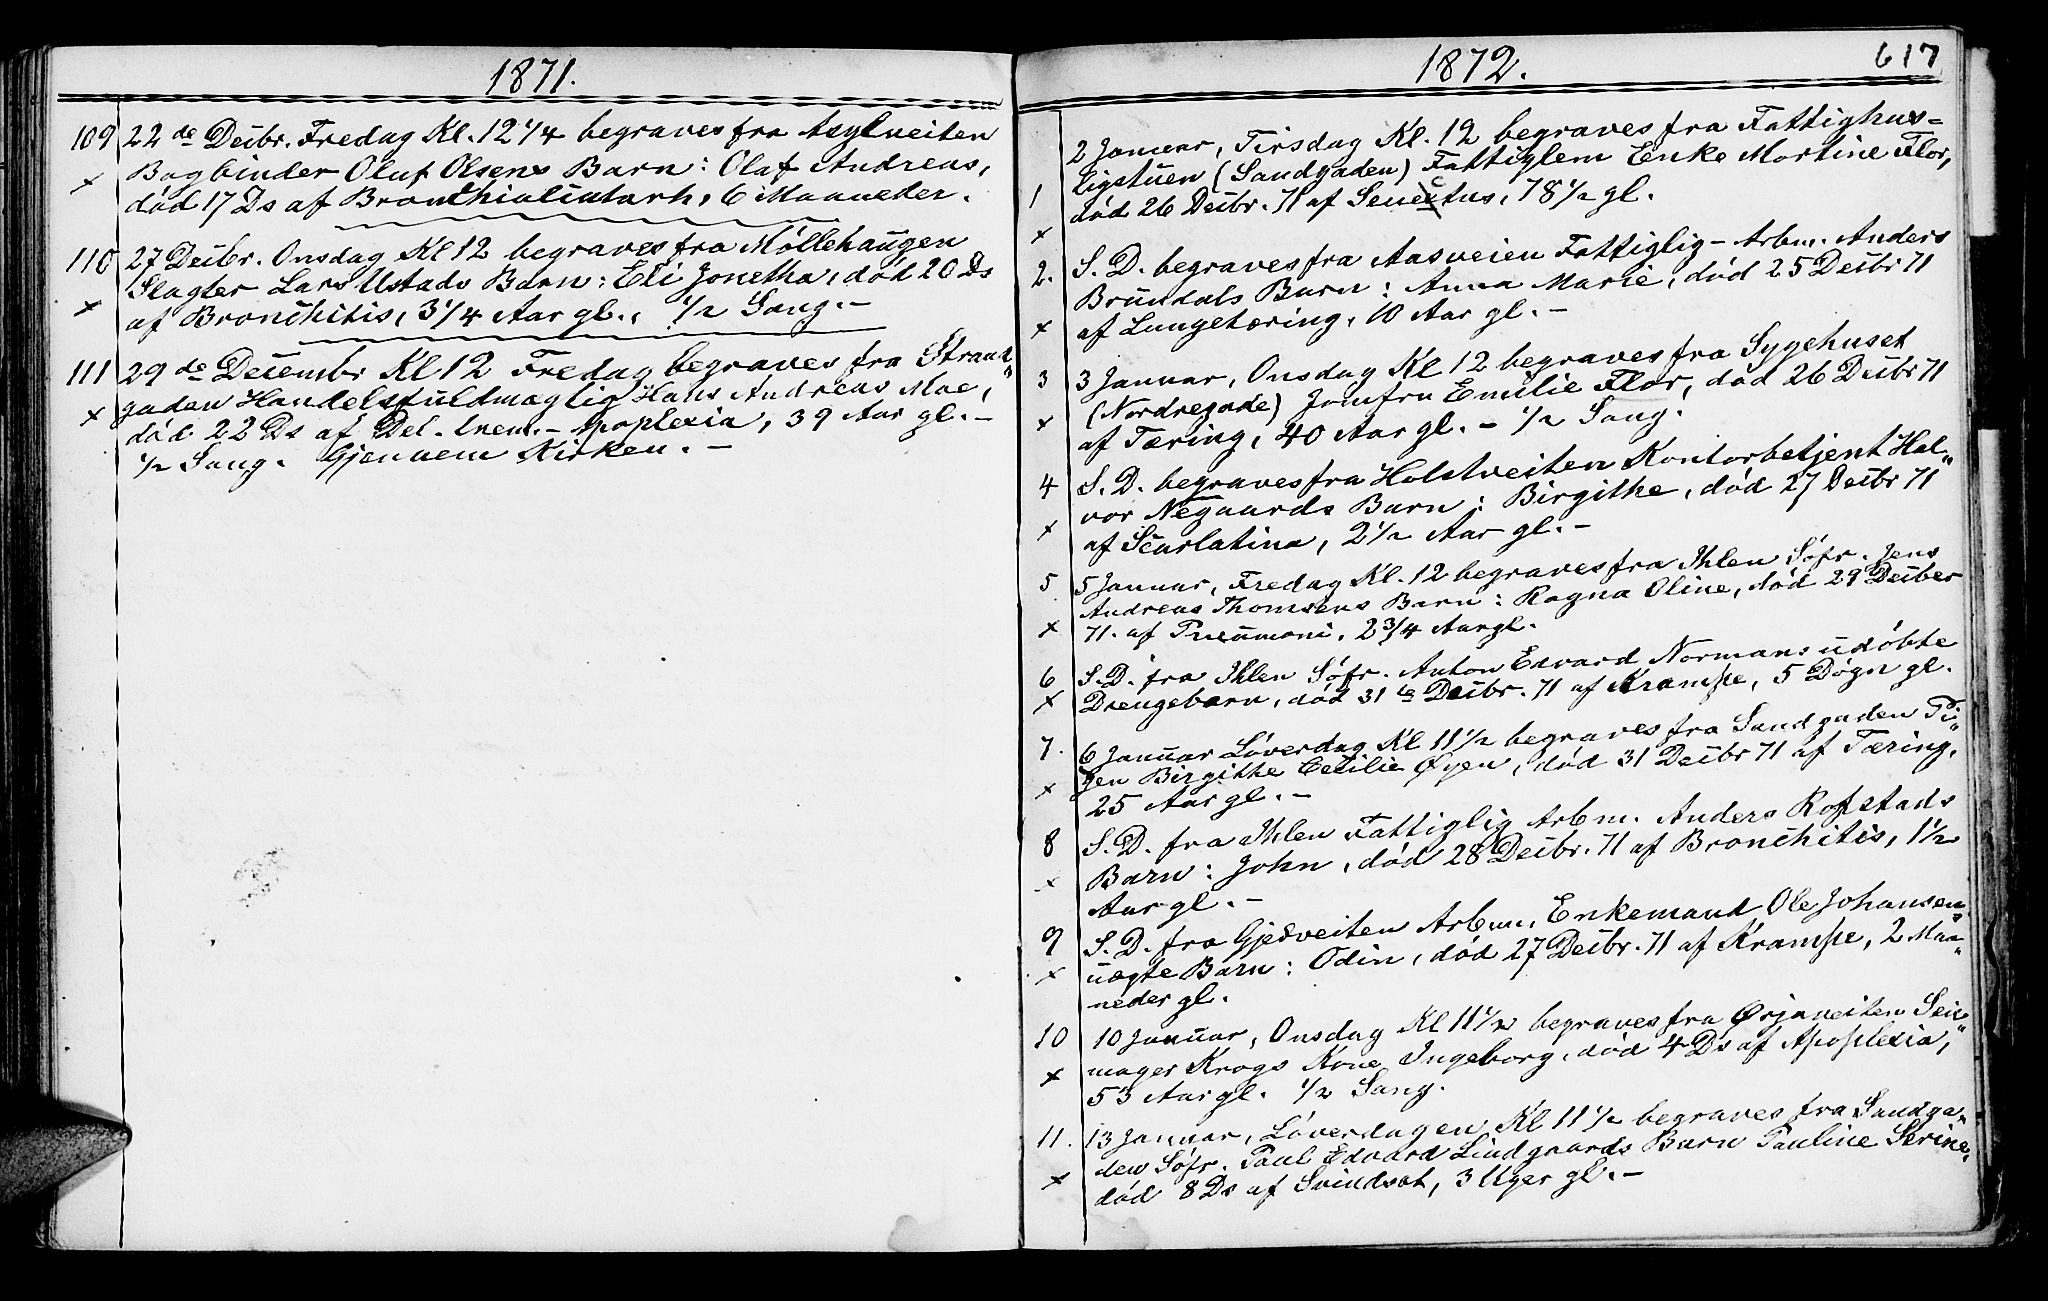 1871.
109 22de Decbr. Fredag Kl. 12 1/4 begraves fra Asylveiten
Bogbinder Oluf Olsens Barn: Olaf Andreas,
død 17 Ds af 6 Maaneder.
110 27 Decbr. Onsdag Kl 12 begraves fra Møllehaugen
Slagter Lars Ustads Barn: Eli Jonetha, død 20 Ds
af Bronchitis, 3 1/4 Aar gl., 1/2 Sang. –
111 29de Decembr Kl 12 Fredag begraves fra Strand„
gaden Handelsfuldmægtig Hans Andreas Moe,
død 22 Ds af Del. trem. – Apoplexia, 39 Aar gl. –
1/2 Sang. Gjennem Kirken. –
1872.
617
1 2 Januar, Tirsdag Kl. 12 begraves fra Fattighus–
ligstuen (Sandgaden) Fattiglem Enke Martine Flor,
død 26 Decbr. 71 af Senectus, 78 1/2 gl.
2. S. D. begraves fra Aasveien Fattiglig – Arbm. Anders
Brundals Barn: Anna Marie, død 25 Decbr 71
af Lungetæring, 10 Aar gl. –
3 3 Januar, Onsdag Kl 12 begraves fra Sygehuset
(Nordregade) Jomfru Emilie Flor, død 26 Decbr 71
af Tæring, 40 Aar gl. – 1/2 Sang.
4 S. D. begraves fra Holstveiten Kontorbetjent Hal„
vor Negaards Barn: Birgithe, død 27 Decbr 71
af Scarlatina, 2 1/2 Aar gl. –
5 5 Januar, Fredag Kl. 12 begraves fra Ihlen Søfr. Jens
Andreas Thomsens Barn: Ragna Oline, død 29 Decber
71. af Pneumoni, 2 3/4 Aar gl.
6 S. D. fra Ihlen Søfr. Anton Edvard Normans udøbte
Drengebarn, død 31te Decbr. 71 af Krampe, 5 Døgn gl.
7. 6 Januar Løverdag Kl 11 1/2 begraves fra Sandgaden Pi„
gen Birgithe Cecilie Øyen, død 31 Decbr 71 af Tæring,
25 Aar gl. –
8 S. D. fra Ihlen Fattiglig Arbm. Anders Rofstads
Barn: John, død 28 Decbr. 71 af Bronchitis, 1 1/2
Aar gl. –
9 S. D. fra Gjedveiten Arbm. Enkemand Ole Johansens
uægte Barn: Odin, død 27 Decbr. 71 af Krampe, 2 Maa„
neder gl.
10 10 Januar, Onsdag Kl 11 1/2 begraves fra Ørjaveiten Seil„
mager Krogs Kone Ingeborg, død 4 Ds af Apoplexia,
53 Aar gl. 1/2 Sang.
11. 13 Januar, Løverdagen Kl 11 1/2 begraves fra Sandga„
den Søfr. Paul Edvard Lindgaards Barn Pauline Serine,
død 8 Ds af Svindsot, 3 Uger gl. –